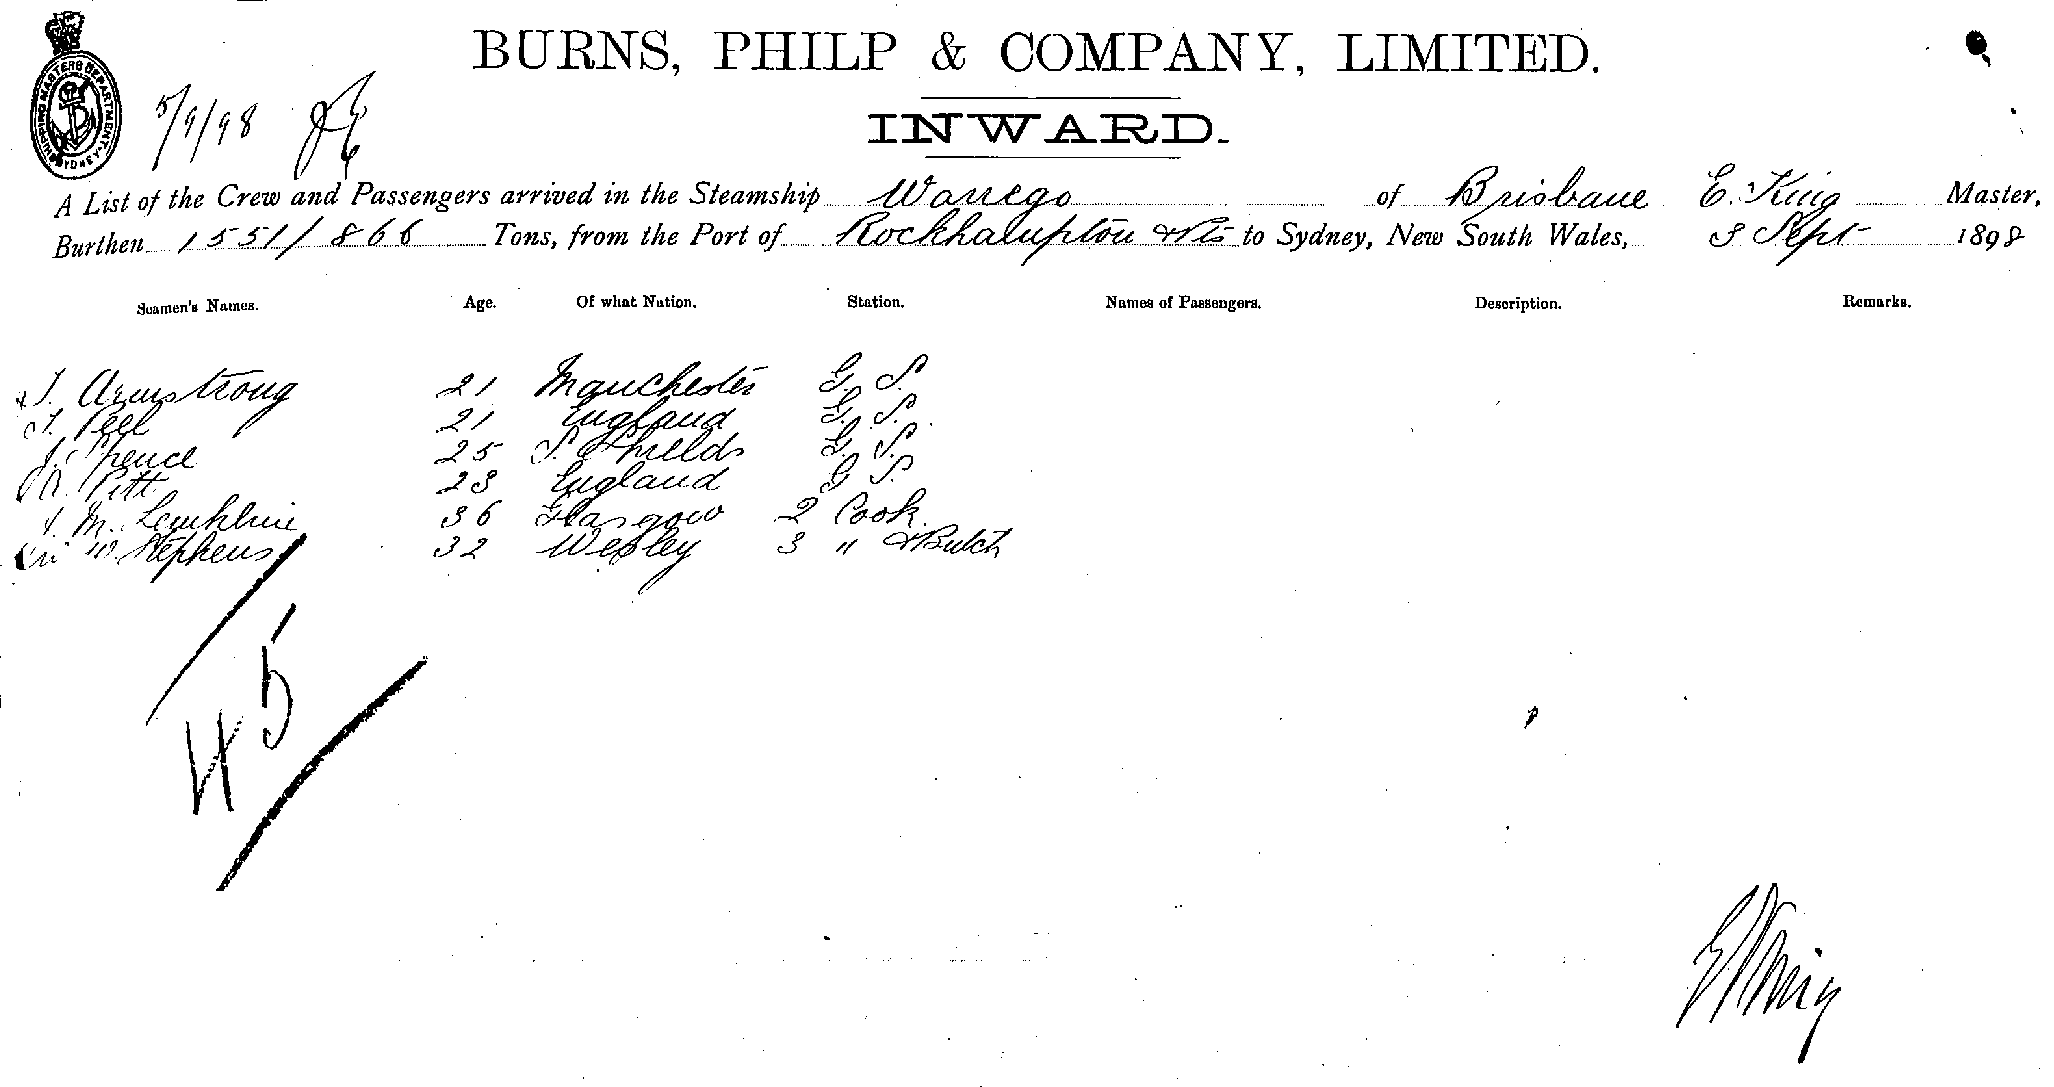 BURNS, PHILP & COMPANY, LIMITED.
SHIPPING MASTERS DEPARTMENT SYDNEY
5/9/98
INWARD.
A List of the Crew and Passengers arrived in the Steamship Warrego of Brisbane E. King Master,
Burthen 1551/866 Tons, from the Port of Rockhampton & Pts to Sydney, New South Wales, 3 Sept 1898
Seamen's Names. Age. Of what Nation. Station. Names of Passengers. Description. Remarks.
J. Armstrong 21 Manchester G. S.
J. Peel 21 England G. S.
J. Spence 25 S. Shields G. S.
Pitt 23 England G S.
36 Glasgow 2 Cook.
W. Stephens 32 3 " & Butch
45
E King